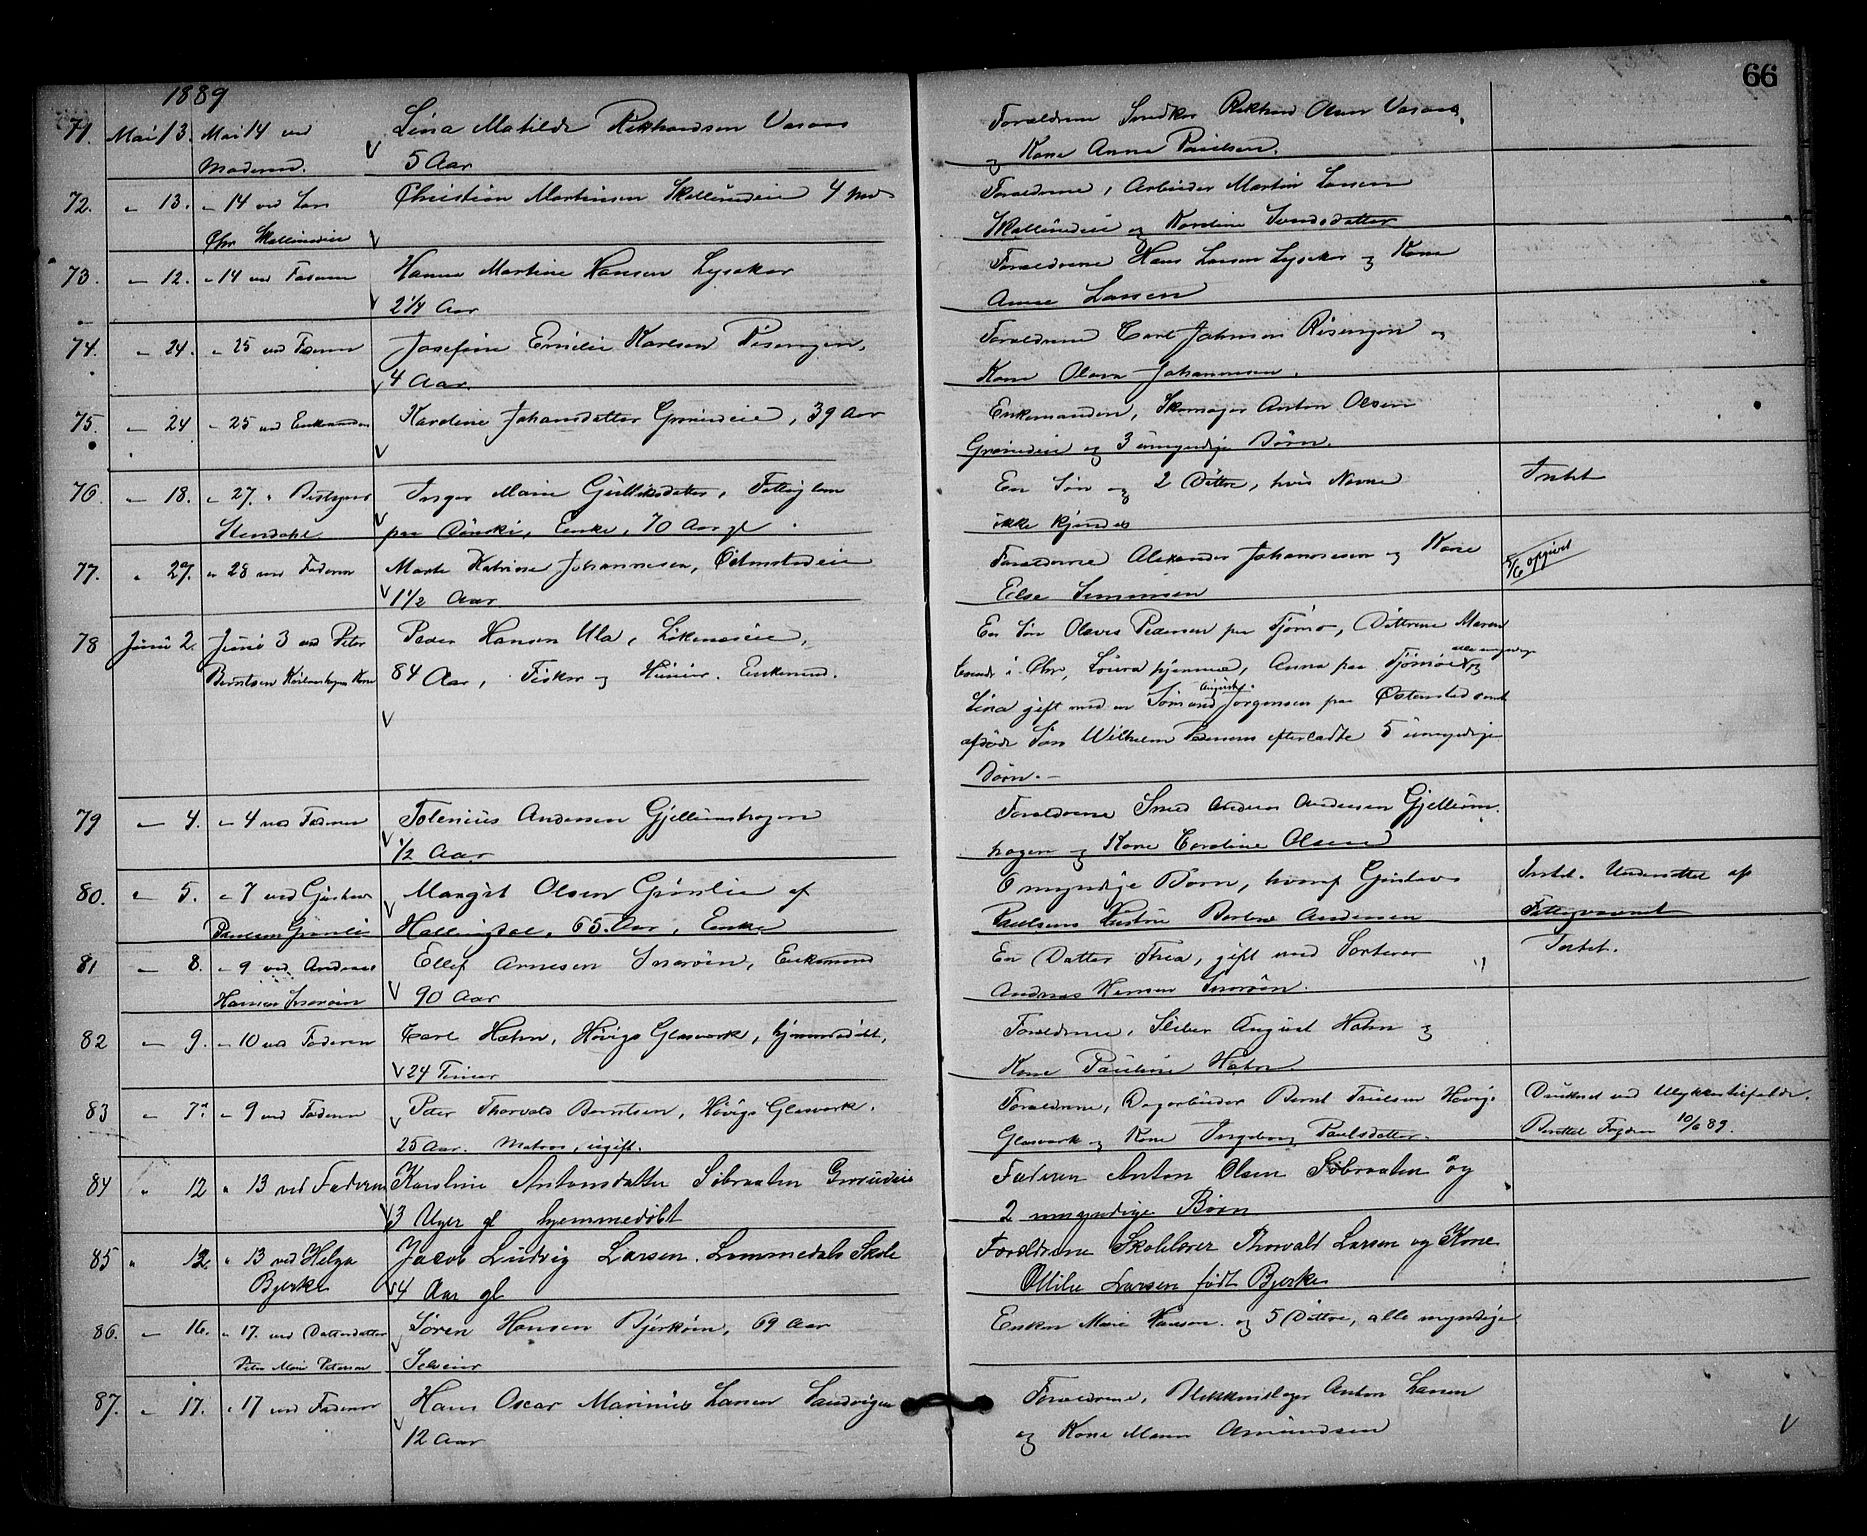 66
1889
71. Mai 13. Mai 14 ved Lina Matilde Rikhardsen Vasaas Forældrene Snedker Rikhard Olsen Vasaas,
Moderen. 5 Aar og Kone Anna Paulsen.
72. " 13. " 14 ved Lars Christian Martinsen Skallumeie 4 Md Forældrene, Arbeider Martin Larsen
Chr Skallumeie Skallumeie og Karoline
73. " 12. " 14 ved Faderen Hanna Martine Hansen Lysaker Forældrene Hans Larsen Lysaker og Kone
2 1/4 Aar Anne Larsen
74. " 24. " 25 ved Faderen Josefine Emilie Karlsen Risengen, Forældrene Carl Johnsen Risengen og
4 Aar Kone Olava Johannesen.
75. " 24 " 25 ved Enkemanden Karoline Johansdatter Grinieie, 39 Aar Enkemanden, Skomager Anton Olsen
Grinieie og 3 umyndige Børn.
76. " 18. " 27. " Bestyrer Inger Marie Gulliksdatter, Fattiglem En Søn og 2 Døttre, hvis Navne Intet
Stendahl paa Dønski, Enke, 70 Aar gl. ikke kjendes
77. " 27. " 28 ved Faderen Marte Katrine Johannesen, Forældrene Alexander Johannesen og Kone 5/6 opgivet
1 1/2 Aar Else Simensen
78 Juni 2. Juni 3 ved Peter Peder Hansen Ula, Løkeneseie, En Søn Olaves Pedersen paa Tjømø, Døttrene Maren
Berntsen Kone 84 Aar, Fisker og Huseier. Enkemand. boende i Chr, Lovra hjemme, Anna paa Tjømøe alle myndige og
Lina gift med en Sømand August Jørgensen paa Østenstad samt
afdøde Søn Wilhelm Pedersens efterladte 5 umyndige
Børn.
79 " 4. " 4 ved Faderen Tolenius Andersen Gjellumshagen Forældrene Smed Andreas Andersen Gjellum
1/2 Aar hagen og Kone Caroline Olsen
80. " 5. " 7 ved Gustav Margit Olsen Grinlie af 6 myndige Børn, hvoraf Gustav Intet. Understøttet af
Paulsen Grinlie Hallingdal, 65 Aar, Enke Paulsens Hustru Andersen Fattigvæsenet
81 " 8. " 9 ved Andreas Ellef Arnesen Snarøen, Enkemand En Datter Thea, gift med Sorterer Intet.
Hansen Snarøen 90 Aar Andreas Hansen Snarøen.
82 " 9. " 10 ved Faderen Carl Hahn, Høvigs Glasværk, hjemmedøbt, Forældrene, Sliber August Hahn og
24 Timer Kone Pauline Hahn
83 " 7. " 9 ved Faderen Peter Thorvald Berntsen, Høvigs Glasværk. Forældrene, Dagarbeider Bernt Paulsen Høvigs Druknet ved Ulykkestilfælde.
25 Aar. Matros, ugift. Glasværk og Kone Ingeborg Paulsdatter. Berettet Fogden 10/6 89.
84 " 12 " 13 ved Faderen Karoline Antonsdatter Søbraaten Grinieie Faderen Anton Olsen Søbraaten og
3 Uger gl hjemmedøbt 2 umyndige Børn
85 " 12. " 13 ved Helga Jacob Ludvig Larsen. Lommedals Skole Forældrene Skolelærer Thorvald Larsen og Kone
Bjerke 4 Aar gl Ottilie Larsen født Bjerke
86. " 16. " 17. ved Datterdatter Søren Hansen Bjerkøen, 69 Aar Enken Marie Hansen. og 5 Døttre, alle myndige
Marie Petersen Selveier
87. " 17. " 17 ved Faderen Hans Oscar Marinius Larsen Sandvigen Forældrene, Blikkenslager Anton Larsen
12 Aar og Kone Maren Amundsen